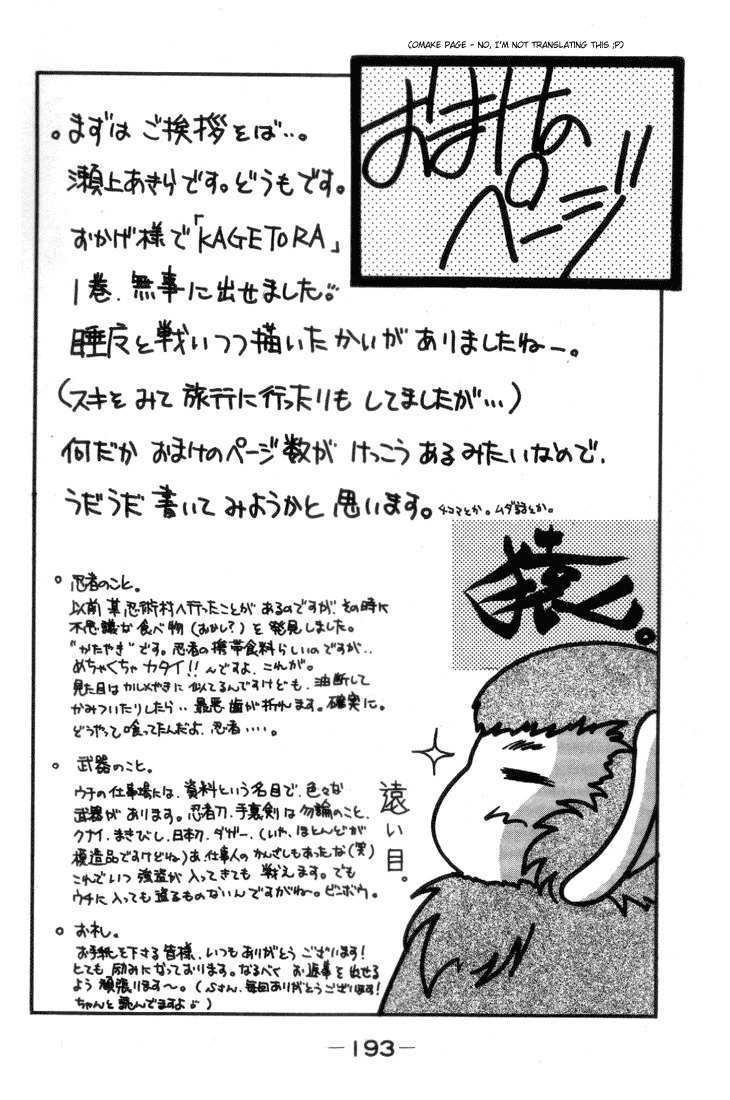 (OMAKE PAGE - NO, I'M NOT TRANSLATING THIS ;P)
おまけの
ページ!!
。まずは ご挨拶をば…。
瀬上あきらです。どうもです。
おかげ様で「KAGETORA」
1巻、無事に出せました。
睡魔と戦いつつ描いたかいが ありましたねー。
(スキを みて 旅行に行ったりも してましたが…)
何だか おまけのページ数が けっこう あるみたいなので、
うだうだ 書いて みようかと 思います。4コマとか。ムダ話とか。
猿。
。忍者のこと。
以前 某忍術村へ行ったことが あるのですが その時に
不思議な 食べ物(おかし?)を 発見しました。
"かたやき"です。忍者の携帯食料らしいのですが‥
めちゃくちゃ カタイ!!んですよ、これが。
見た目は カルメやきに 似てるんですけども、油断して
かみついたりしたら‥ 最悪 歯が 折れます。確実に。
どうやって 喰ってたんだよ、忍者‥‥。
。武器のこと。
ウチの仕事場には、資料という名目で、色々な
武器が あります。忍者刀、手裏剣は勿論のこと、
クナイ、まきびし、日本刀、ダガー、(いや、ほとんどが
模造品ですけどね)あ、仕事人の かんざしもあったな(笑)
これで いつ 強盗が 入ってきても 戦えます。でも
ウチに入っても 盗るものないんですがね〜。ビンボウ。
遠い目。
。お礼。
お手紙を下さる 皆様、いつも ありがとう ございます!
とても 励みになっております。なるべく お返事を 出せる
よう 頑張ります〜。(Sさん、毎回ありがとうございます!
ちゃんと 読んでますよ)
-193-